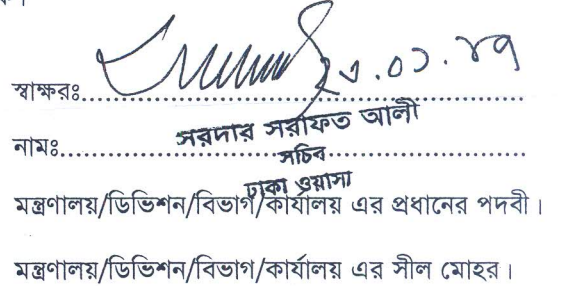 স্বাক্ষরঃ
নামঃ
সরদার সরাফত আলী
সচিব
ঢাকা ওয়াসা
মন্ত্রণালয়/ডিভিশন/বিভাগ/কার্যালয় এর প্রধানের পদবী।
মন্ত্রণালয়/ডিভিশন/বিভাগ/কার্যালয় এর সীল মোহর।